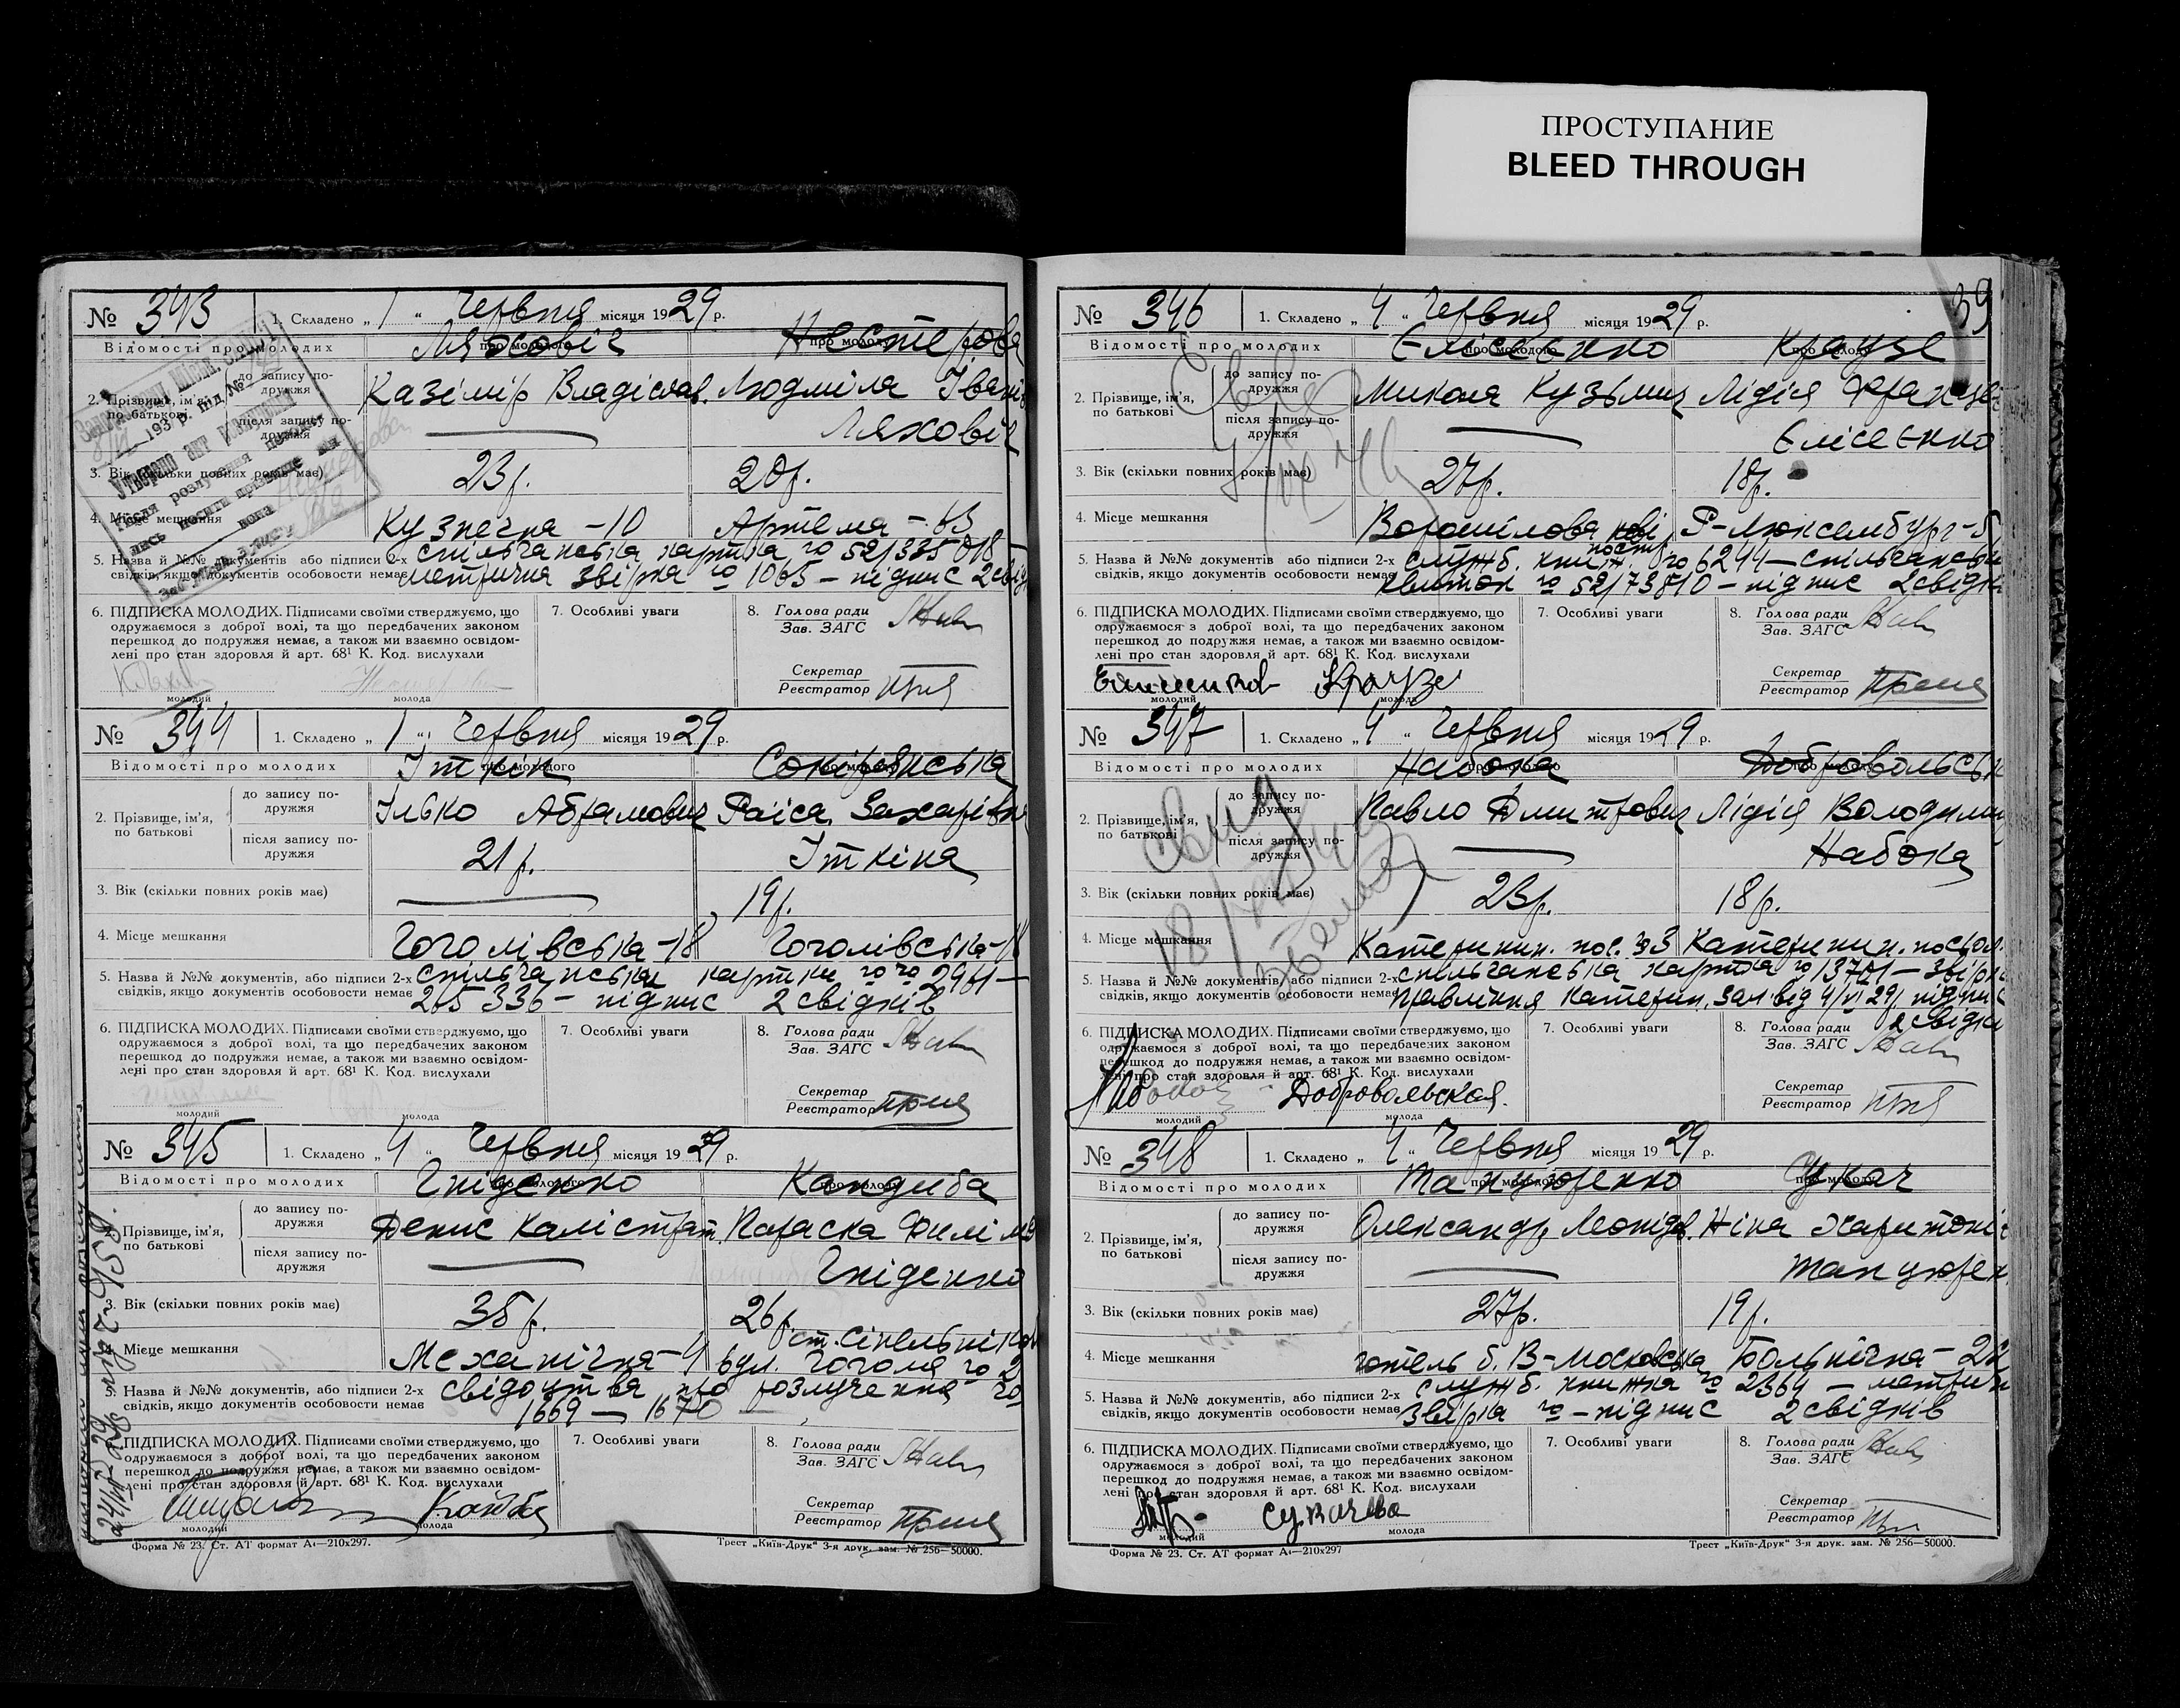 ПРОСТУПАНИЕ
BLEED THROUGH
39
№ 343 1. Складено „ 1 “ Червня місяця 1929 р.
Відомості про молодих про молодого про молоду
Ляхович Нестерова
2. Прізвище, ім'я, по батькові
до запису подружжя Казімір Владіслав. Людміла Івані
після запису подружжя — Ляхович
3. Вік (скільки повних років має) 23 р. 20 р.
4. Місце мешкання Кузнечна - 10 Артема - 63
5. Назва й №№ документів або підписи 2-х свідків, якщо документів особовости немає
спільчанська картка № 52/335018 —
метрична звірка № 1065 — підпис 2 свід
6. ПІДПИСКА МОЛОДИХ. Підписами своїми стверджуємо, що
одружаємося з доброї волі, та що передбачених законом
перешкод до подружжя немає, а також ми взаємно освідом-
лені про стан здоровля й арт. 68¹ К. Код. вислухали
молодий молода
7. Особливі уваги
8. Голова ради
Зав. ЗАГС
Секретар
Реєстратор
№ 344 1. Складено „ 1 “ Червня місяця 1929 р.
Відомості про молодих про молодого про молоду
Іткін
2. Прізвище, ім'я, по батькові
до запису подружжя Ілько Абрамович Раіса Захарівна
після запису подружжя 21 р. Іткіна
3. Вік (скільки повних років має) — 19 р.
4. Місце мешкання Гоголівська - 18 Гоголівська - 18
5. Назва й №№ документів, або підписи 2-х свідків, якщо документів особовости немає
спільчанськи картки №№ 2961 —
265336 — підпис 2 свідків
6. ПІДПИСКА МОЛОДИХ. Підписами своїми стверджуємо, що
одружаємося з доброї волі, та що передбачених законом
перешкод до подружжя немає, а також ми взаємно освідом-
лені про стан здоровля й арт. 68¹ К. Код. вислухали
молодий молода
7. Особливі уваги
8. Голова ради
Зав. ЗАГС
Секретар
Реєстратор
№ 345 1. Складено „ 4 “ Червня місяця 1929 р.
Відомості про молодих про молодого про молоду
Гніденко Кандиба
2. Прізвище, ім'я, по батькові
до запису подружжя Денис Калістрат. Параска Филімо
після запису подружжя — Гніденко
3. Вік (скільки повних років має) 35 р. 26 р.
4. Місце мешкання Механічна - 4 ст. Сінельніково
вул. Гоголя № 2
5. Назва й №№ документів, або підписи 2-х свідків, якщо документів особовости немає
свідоцтва про розлучення №
1669 — 1670 —
6. ПІДПИСКА МОЛОДИХ. Підписами своїми стверджуємо, що
одружаємося з доброї волі, та що передбачених законом
перешкод до подружжя немає, а також ми взаємно освідом-
лені про стан здоровля й арт. 68¹ К. Код. вислухали
молодий молода
7. Особливі уваги
8. Голова ради
Зав. ЗАГС
Секретар
Реєстратор
Форма № 23. Ст. АТ формат А₄—210х297. Трест „Київ-Друк“ 3-я друк. зам. № 256—50000.
№ 346 1. Складено „ 4 “ Червня місяця 1929 р.
Відомості про молодих про молодого про молоду
Єлісеєнко Краузе
2. Прізвище, ім'я, по батькові
до запису подружжя Микола Кузьмич Лідія Францев
після запису подружжя — Єлісеєнко
3. Вік (скільки повних років має) 27 р. 18 р.
4. Місце мешкання Р-Люксембург - 5
5. Назва й №№ документів або підписи 2-х свідків, якщо документів особовости немає
служб. книж. № 6244 — спільчански
квиток № 52/73810 — підпис 2 свідк
6. ПІДПИСКА МОЛОДИХ. Підписами своїми стверджуємо, що
одружаємося з доброї волі, та що передбачених законом
перешкод до подружжя немає, а також ми взаємно освідом-
лені про стан здоровля й арт. 68¹ К. Код. вислухали
Краузе
молодий молода
7. Особливі уваги
8. Голова ради
Зав. ЗАГС
Секретар
Реєстратор
№ 347 1. Складено „ 4 “ Червня місяця 1929 р.
Відомості про молодих про молодого про молоду
Набока Добровольськ
2. Прізвище, ім'я, по батькові
до запису подружжя Павло Дмитрович Лідія Володими
після запису подружжя — Набока
3. Вік (скільки повних років має) 23 р. 18 р.
4. Місце мешкання Катеринин. пос. № 3 Катеринин. посьол.
5. Назва й №№ документів, або підписи 2-х свідків, якщо документів особовости немає
спільчанська картка № 13701 — звірка
правління Катерин. зал від 4/VI 29 р. підпис
2 свідки
6. ПІДПИСКА МОЛОДИХ. Підписами своїми стверджуємо, що
одружаємося з доброї волі, та що передбачених законом
перешкод до подружжя немає, а також ми взаємно освідом-
лені про стан здоровля й арт. 68¹ К. Код. вислухали
Добровольская
молодий молода
7. Особливі уваги
8. Голова ради
Зав. ЗАГС
Секретар
Реєстратор
№ 348 1. Складено „ 4 “ Червня місяця 1929 р.
Відомості про молодих про молодого про молоду
Танцюренко Сукач
2. Прізвище, ім'я, по батькові
до запису подружжя Олександр Леонідов. Ніна Харитоні
після запису подружжя — Танцюрен
3. Вік (скільки повних років має) 27 р. 19 р.
4. Місце мешкання готель б. В-Московська Больнична - 22
5. Назва й №№ документів, або підписи 2-х свідків, якщо документів особовости немає
служб. книжка № 2364 — метрич
звірка № — підпис 2 свідків
6. ПІДПИСКА МОЛОДИХ. Підписами своїми стверджуємо, що
одружаємося з доброї волі, та що передбачених законом
перешкод до подружжя немає, а також ми взаємно освідом-
лені про стан здоровля й арт. 68¹ К. Код. вислухали
Сукачева
молодий молода
7. Особливі уваги
8. Голова ради
Зав. ЗАГС
Секретар
Реєстратор
Форма № 23. Ст. АТ формат А₄—210х297 Трест „Київ-Друк“ 3-я друк. зам. № 256—50000.